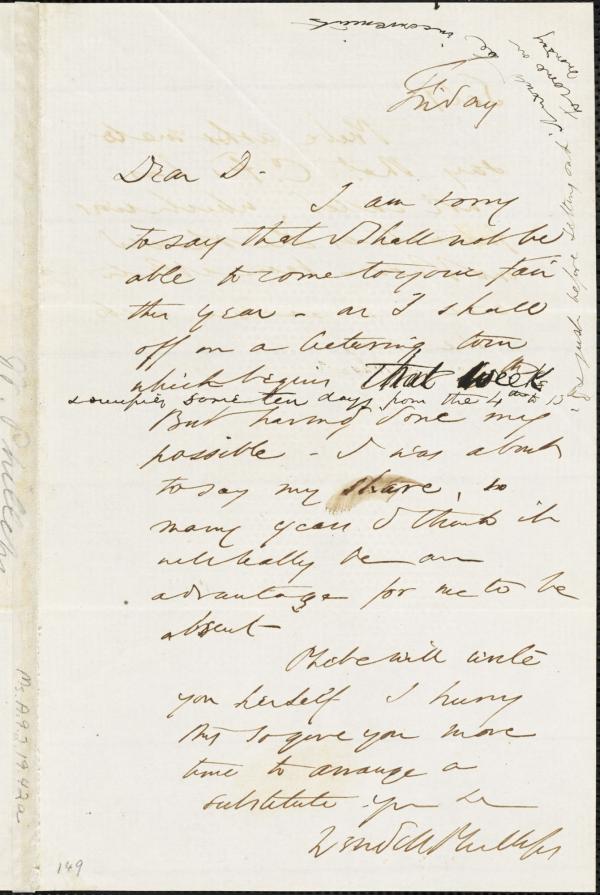 Friday
Dear D.
I am sorry
to say that I shall not be
able to come to your fair
this year - as I shall
off on a lecturing tour
which begins that week
& occupies some ten days from the 4th to 15th
But having done my
possible - I was about
to say my share, so
many years I think it
will really be an
advantage for me to be
absent -
Phebe will write
you herself I hurry
this to give you more
time to arrange a
substitute if you
Wendell Phillips
just before setting out I
would be
inconvenient
W. Phillips
Ms. A.9.2
149